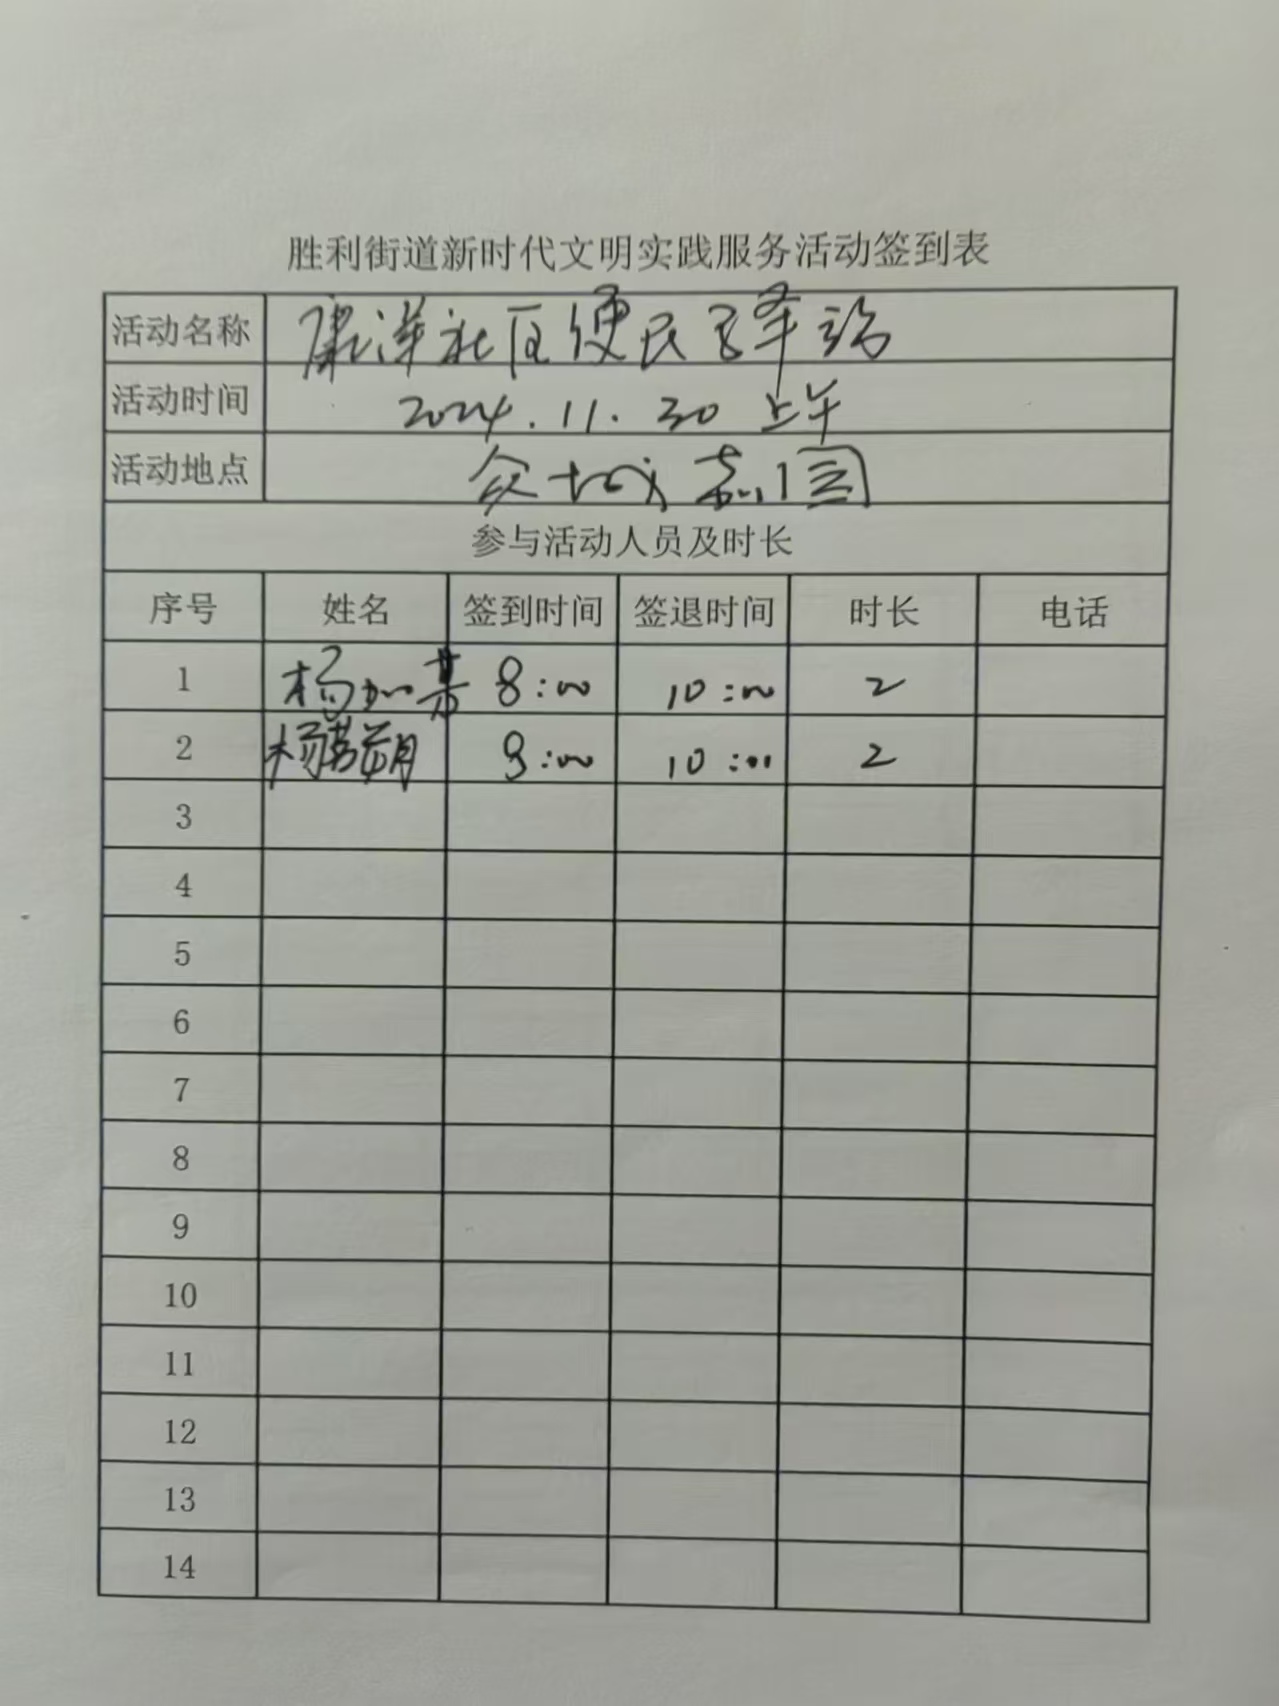 胜利街道新时代文明实践服务活动签到表
活动名称 康洋社区便民驿站
活动时间 2024.11.30 上午
活动地点 众城
参与活动人员及时长
序号 姓名 签到时间 签退时间 时长 电话
1 杨如 8:00 10:00 2
2 杨 8:00 10:00 2
3
4
5
6
7
8
9
10
11
12
13
14